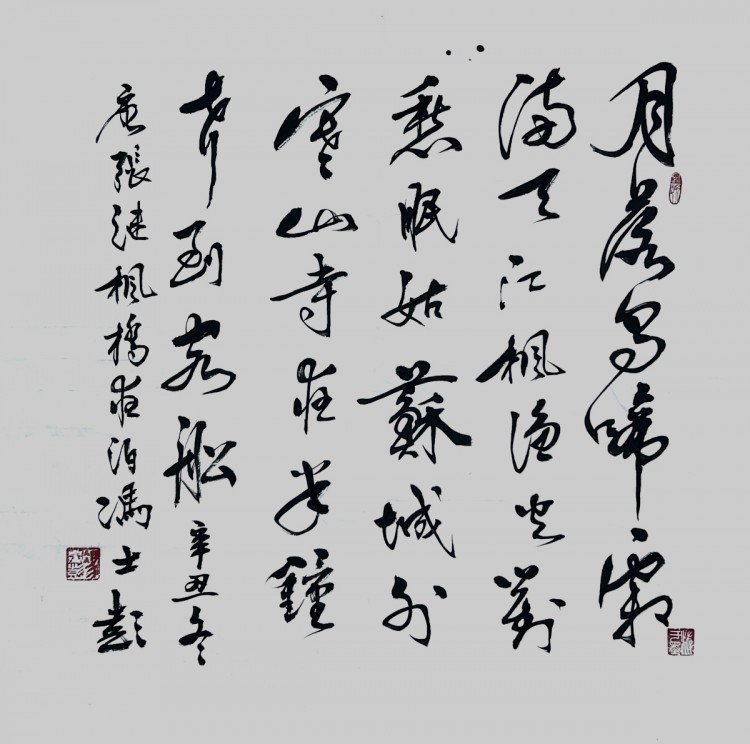 月落烏啼霜
滿天江楓漁火對
愁眠姑蘇城外
寒山寺夜半鐘
聲到客船 辛丑冬
唐張繼楓橋夜泊馮士彭